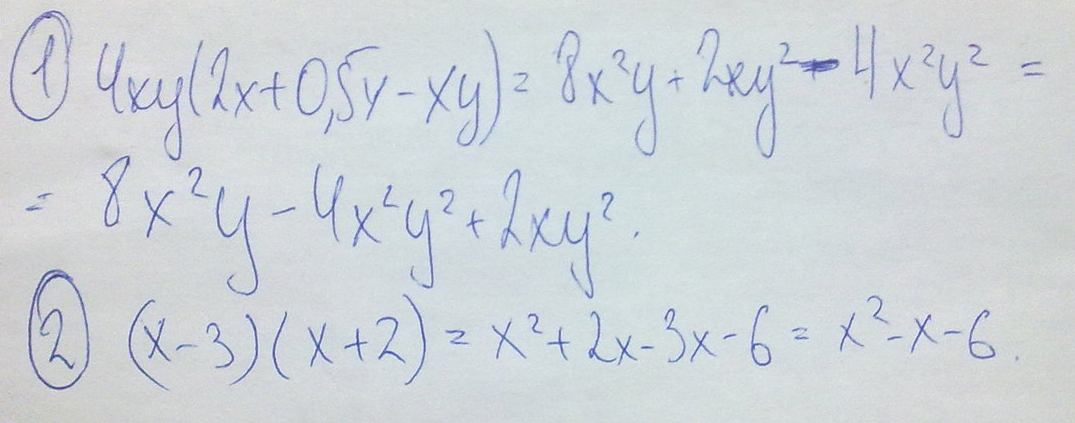 ① 4xy(2x+0,5y-xy)=8x²y+2xy²-4x²y²=
=8x²y-4x²y²+2xy².
② (x-3)(x+2)=x²+2x-3x-6=x²-x-6.